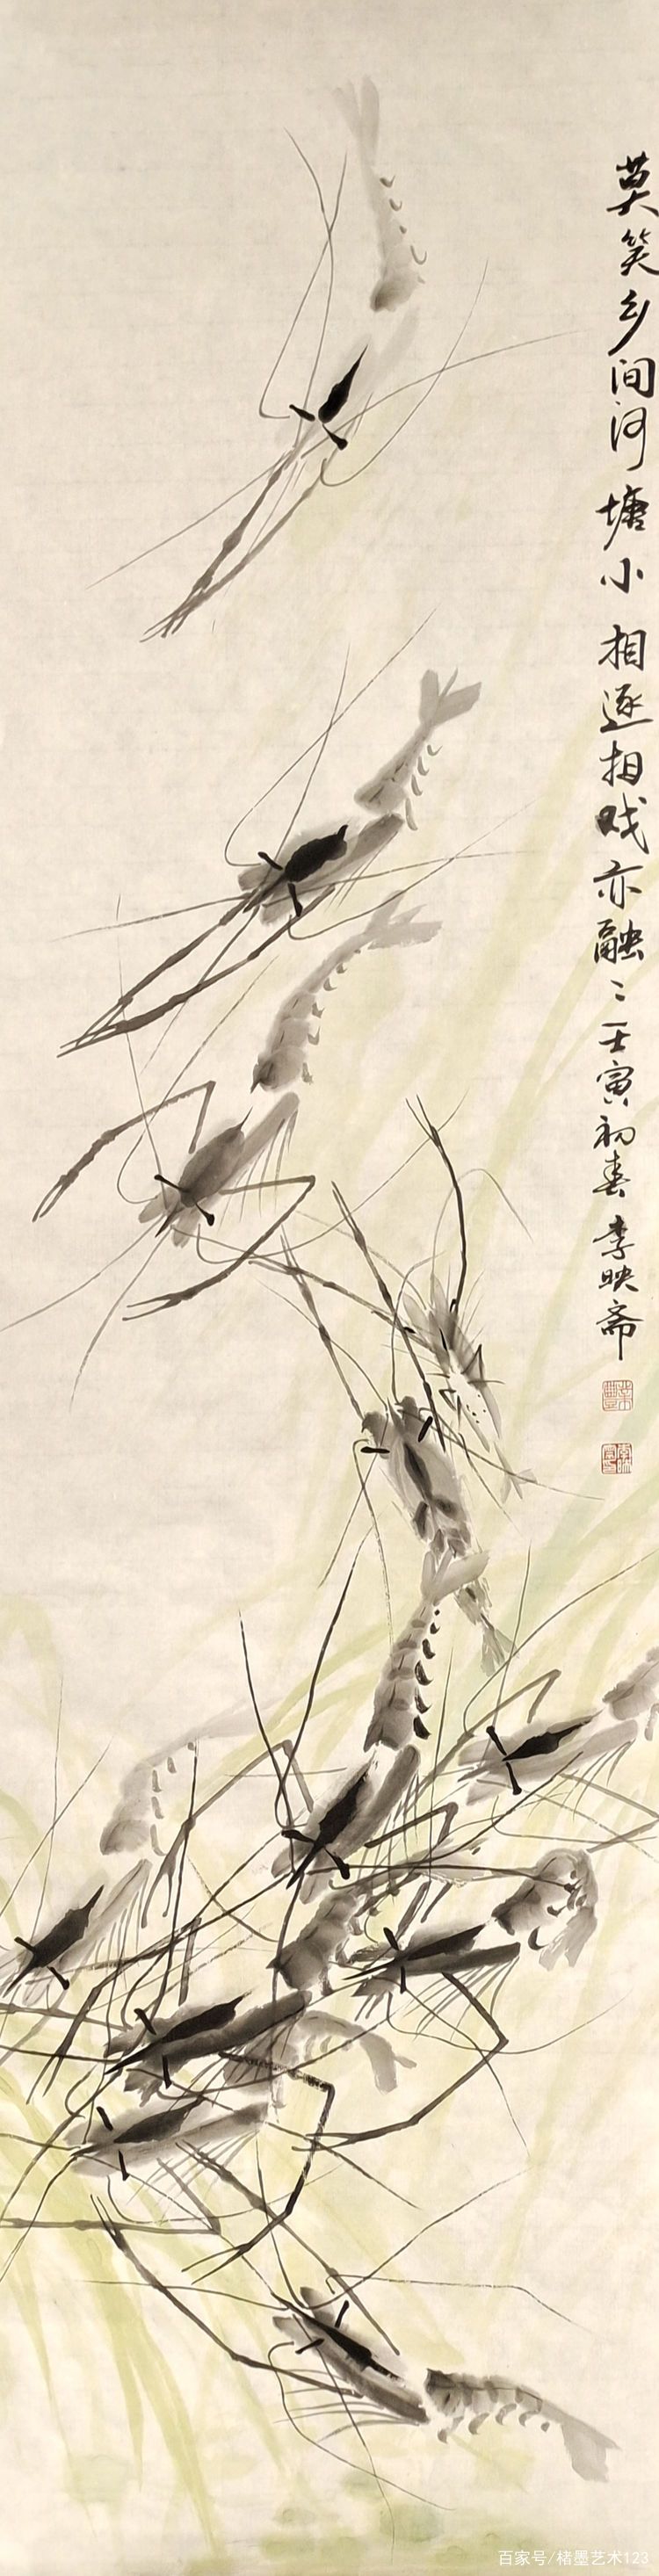 莫笑乡间河塘小相逐相戏亦融〻壬寅初春李映斋
百家号/楮墨艺术123